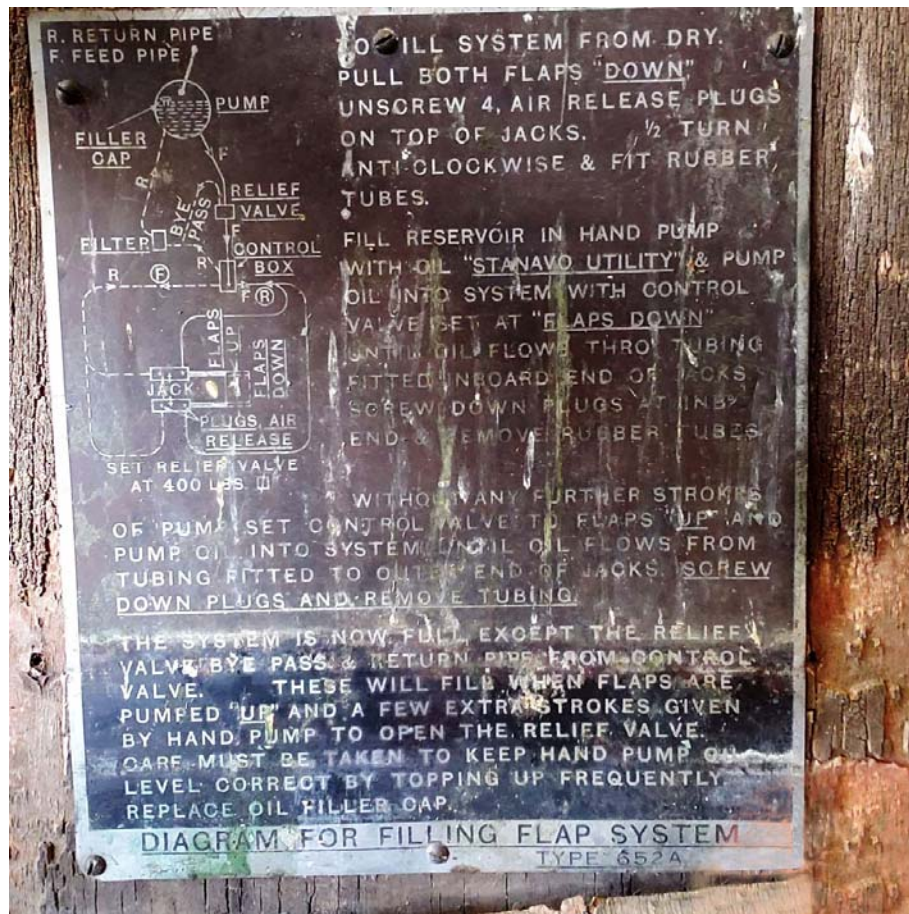 R. RETURN PIPE
F. FEED PIPE
PUMP
FILLER
CAP
F
R
BYE
PASS
RELIEF
VALVE
F
FILTER
R
CONTROL
BOX
R
F
F
R
FLAPS
UP
FLAPS
DOWN
JACK
PLUGS, AIR
RELEASE
SET RELIEF VALVE
AT 400 LBS □
TO FILL SYSTEM FROM DRY.
PULL BOTH FLAPS "DOWN"
UNSCREW 4, AIR RELEASE PLUGS
ON TOP OF JACKS. ½ TURN
ANTI-CLOCKWISE & FIT RUBBER
TUBES.
FILL RESERVOIR IN HAND PUMP
WITH OIL "STANAVO UTILITY" & PUMP
OIL INTO SYSTEM WITH CONTROL
VALVE SET AT "FLAPS DOWN"
UNTIL OIL FLOWS THRO TUBING
FITTED INBOARD END OF JACKS
SCREW DOWN PLUGS AT INBD
END & REMOVE RUBBER TUBES
WITHOUT ANY FURTHER STROKES
OF PUMP SET CONTROL VALVE TO FLAPS "UP" AND
PUMP OIL INTO SYSTEM UNTIL OIL FLOWS FROM
TUBING FITTED TO OUTER END OF JACKS. SCREW
DOWN PLUGS AND REMOVE TUBING.
THE SYSTEM IS NOW FULL EXCEPT THE RELIEF
VALVE BYE PASS & RETURN PIPE FROM CONTROL
VALVE. THESE WILL FILL WHEN FLAPS ARE
PUMPED "UP" AND A FEW EXTRA STROKES GIVEN
BY HAND PUMP TO OPEN THE RELIEF VALVE.
CARE MUST BE TAKEN TO KEEP HAND PUMP OIL
LEVEL CORRECT BY TOPPING UP FREQUENTLY
REPLACE OIL FILLER CAP.
DIAGRAM FOR FILLING FLAP SYSTEM
TYPE 652A